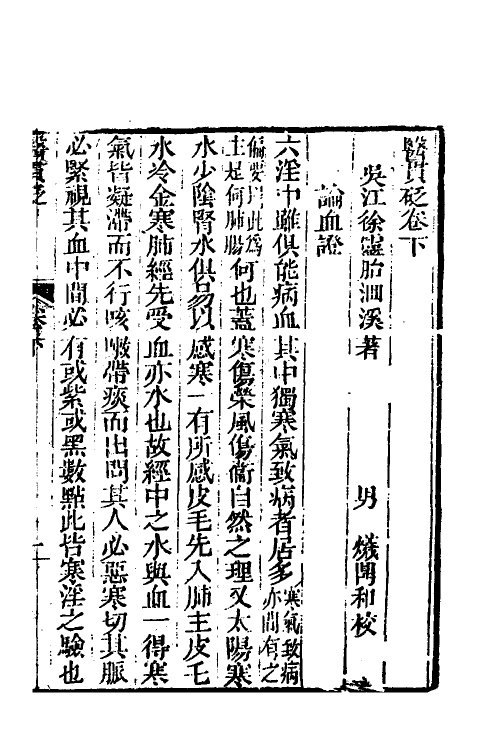 醫貫砭卷下
吳江徐靈胎洄溪著　男　爔開和校
論血證
六淫中雖俱能病血其中獨寒氣致病者居多寒氣致病亦間有之
偏要居此爲主是何肺腸何也蓋寒傷榮風傷衞自然之理又太陽寒
水少陰腎水俱易以感寒一有所感皮毛先入肺主皮毛
水冷金寒肺經先受血亦水也故經中之水與血一得寒
氣皆凝滯而不行咳嗽帶痰而出問其人必惡寒切其脈
必緊視其血中間必有或紫或黑數點此皆寒淫之驗也
醫貫砭